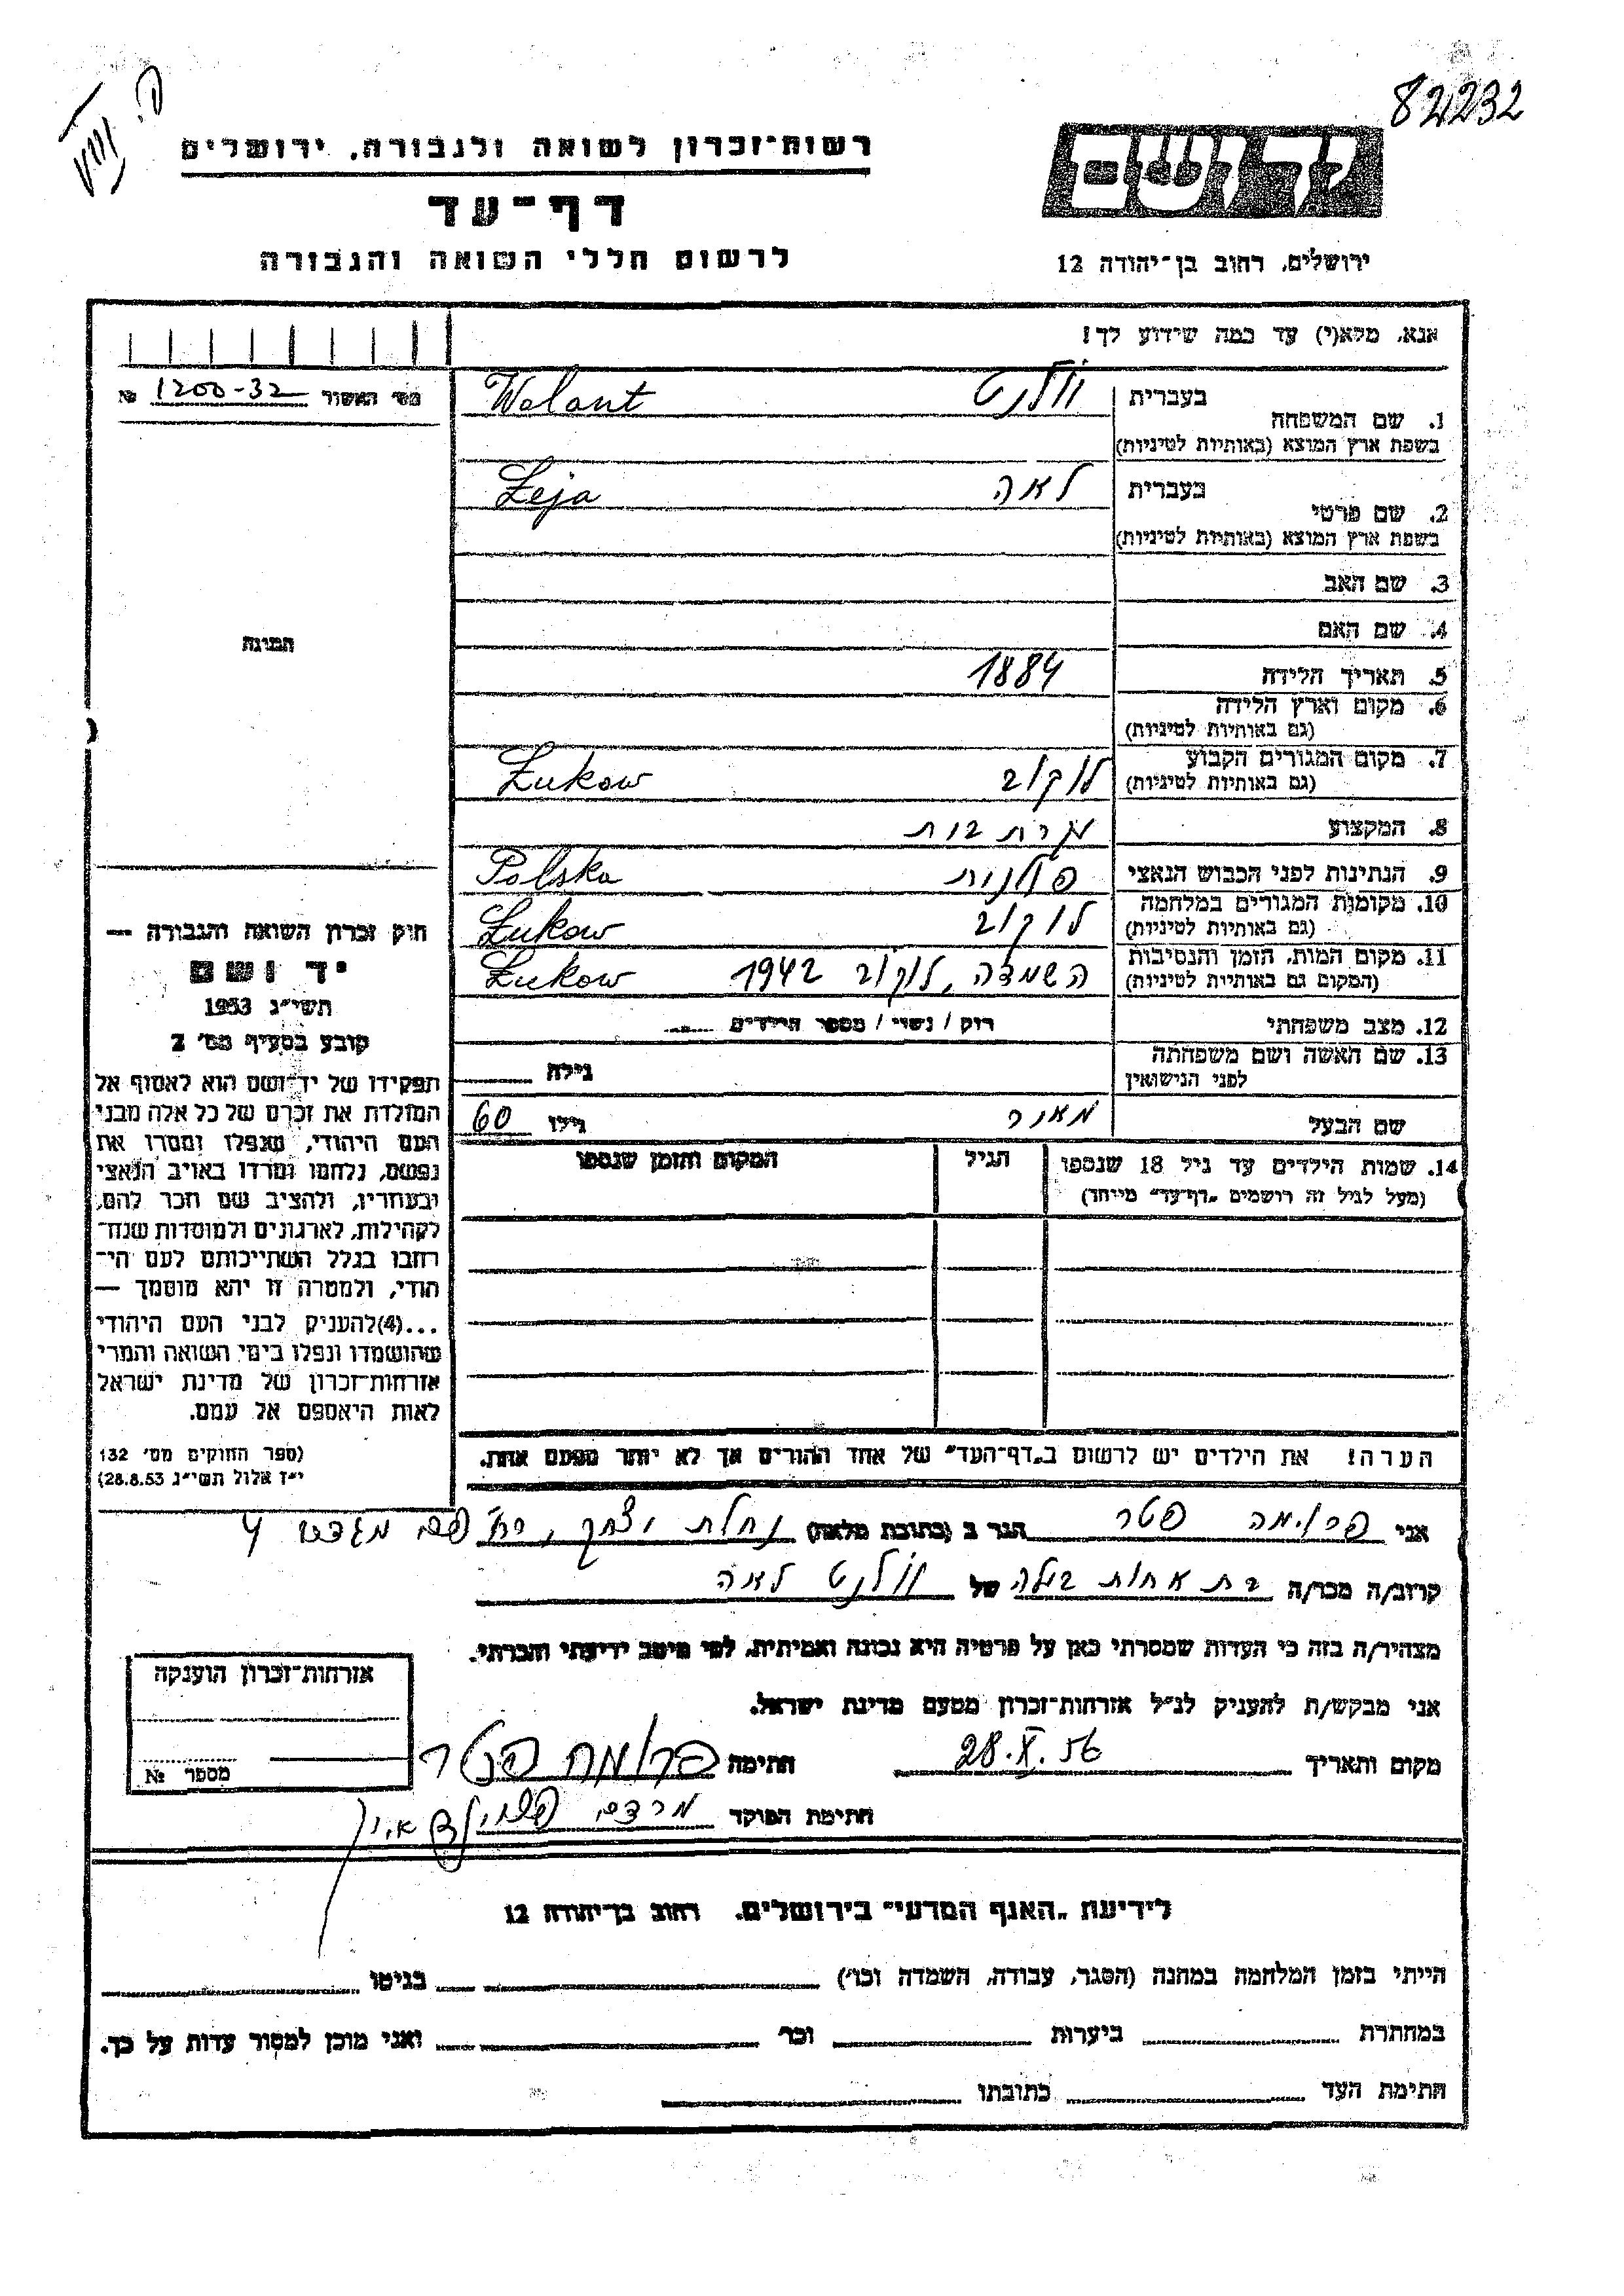 82232
רשות־זכרון לשואה ולגבורה, ירושלים
דף־עד
לרשום חללי השואה והגבורה
ירושלים, רחוב בן־יהודה 12
אנא, מלא(י) עד כמה שידוע לך!
מס׳ האשור 1200-32 №
1. שם המשפחה
בעברית וולנט Walant
בשפת ארץ המוצא (באותיות לטיניות)
2. שם פרטי
בעברית לאה Łeja
בשפת ארץ המוצא (באותיות לטיניות)
3. שם האב
4. שם האם
התמונה
5. תאריך הלידה 1884
6. מקום וארץ הלידה
(גם באותיות לטיניות)
7. מקום המגורים הקבוע לוקוב Łukow
(גם באותיות לטיניות)
8. המקצוע עקרת בית
9. הנתינות לפני הכבוש הנאצי פולנית Polska
10. מקומות המגורים במלחמה לוקוב Łukow
(גם באותיות לטיניות)
11. מקום המות, הזמן והנסיבות השמדה, לוקוב 1942 Łukow
(המקום גם באותיות לטיניות)
12. מצב משפחתי רוק / נשוי / מספר הילדים
13. שם האשה ושם משפחתה
לפני הנישואין
גילה
שם הבעל מאיר גילו 60
14. שמות הילדים עד גיל 18 שנספו הגיל המקום והזמן שנספו
(מעל לגיל זה רושמים „דף־עד״ מייחד)
הערה! את הילדים יש לרשום ב„דף־העד״ של אחד ההורים אך לא יותר מפעם אחת.
חוק זכרון השואה והגבורה —
יד ושם
תשי״ג 1953
קובע בסעיף מס׳ 2
תפקידו של יד־ושם הוא לאסוף אל
המולדת את זכרם של כל אלה מבני
העם היהודי, שנפלו ומסרו את
נפשם, נלחמו ומרדו באויב הנאצי
ובעוזריו, ולהציב שם וזכר להם,
לקהילות, לארגונים ולמוסדות שנח־
רבו בגלל השתייכותם לעם הי־
הודי, ולמטרה זו יהא מוסמך —
...(4)להעניק לבני העם היהודי
שהושמדו ונפלו בימי השואה והמרי
אזרחות־זכרון של מדינת ישראל
לאות היאספם אל עמם.
(ספר החוקים מס׳ 132
י״ז אלול תשי״ג 28.8.53)
אני פרומה פטר הגר ב (כתובת מלאה) נחלת יצחק, רח׳
קרוב/ה מכר/ה בת אחות בעלה של וולנט לאה
מצהיר/ה בזה כי העדות שמסרתי כאן על פרטיה היא נכונה ואמיתית, לפי מיטב ידיעתי והכרתי.
אני מבקש/ת להעניק לנ״ל אזרחות־זכרון מטעם מדינת ישראל.
מקום ותאריך 28.X.56 חתימה פרומה פטר
חתימת הפוקד מרדכי
אזרחות־זכרון הוענקה
מספר №
לידיעת „האגף המדעי״ בירושלים. רחוב בן־יהודה 12
הייתי בזמן המלחמה במחנה (הסגר, עבודה, השמדה וכו׳) בגיטו
במחתרת ביערות וכו׳ ואני מוכן למסור עדות על כך.
חתימת העד כתובתו